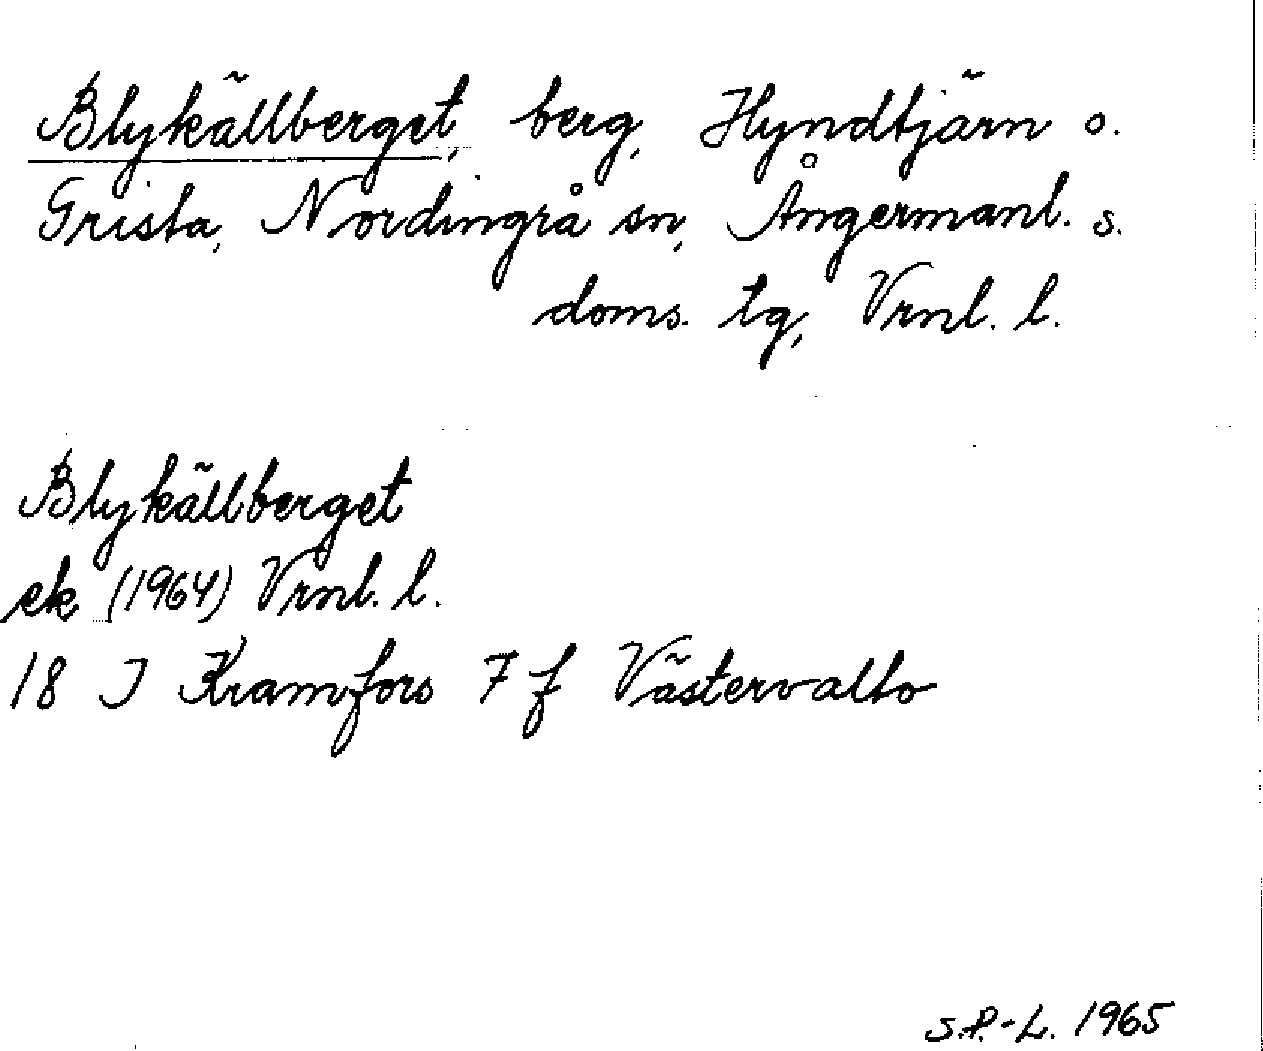 Blykällberget, berg, Hyndtjärn o.
Grista, Nordingrå sn, Ångermanl. s.
doms. tg, Vrnl. l.
Blykällberget
ek (1964) Vrnl. l.
18 J Kramfors 7 f Västervalto
S.P.-L. 1965